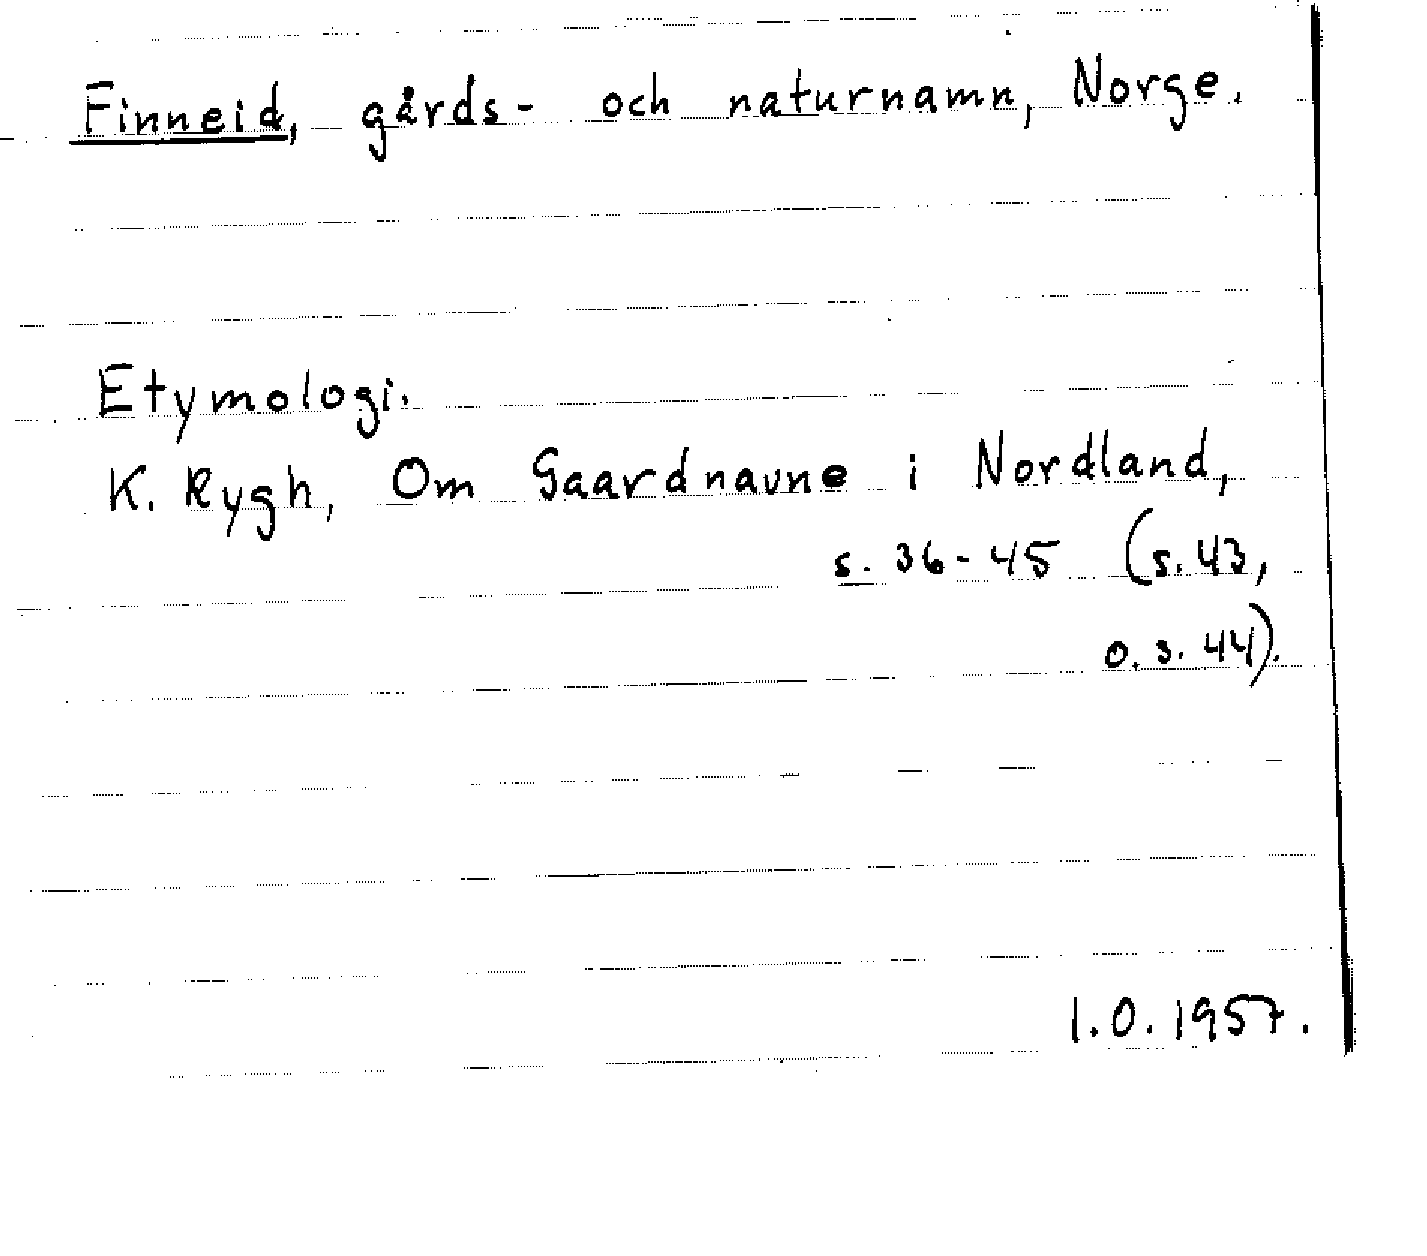 Finneid, gårds- och naturnamn, Norge.
Etymologi.
K. Rygh, Om Gaardnavne i Nordland,
s. 36-45 (s. 43,
o. s. 44).
1.0.1957.